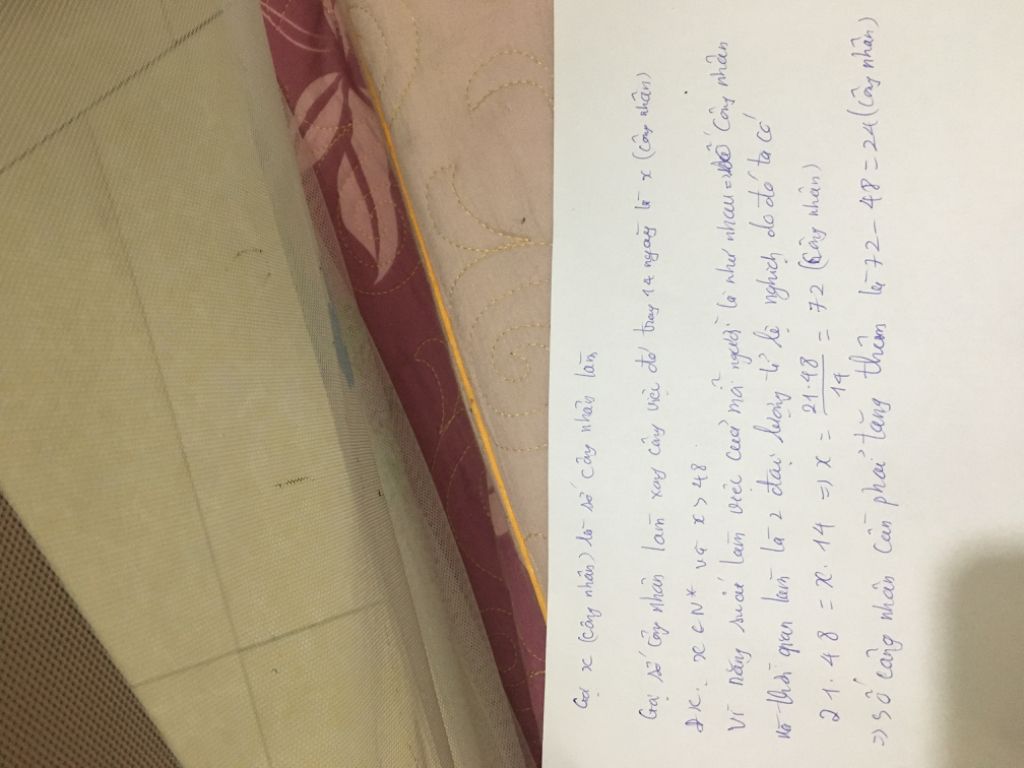 Gọi x (công nhân) là số công nhân làm
Gọi số công nhân làm xong công việc đó trong 14 ngày là x (công nhân)
ĐK: x ∈ N* và x > 48
Vì năng suất làm việc của mỗi người là như nhau => số công nhân
và thời gian làm là 2 đại lượng tỉ lệ nghịch do đó ta có
21.48 = x.14 => x = 21.48/14 = 72 (công nhân)
=> Số công nhân cần phải tăng thêm là 72 - 48 = 24 (công nhân)